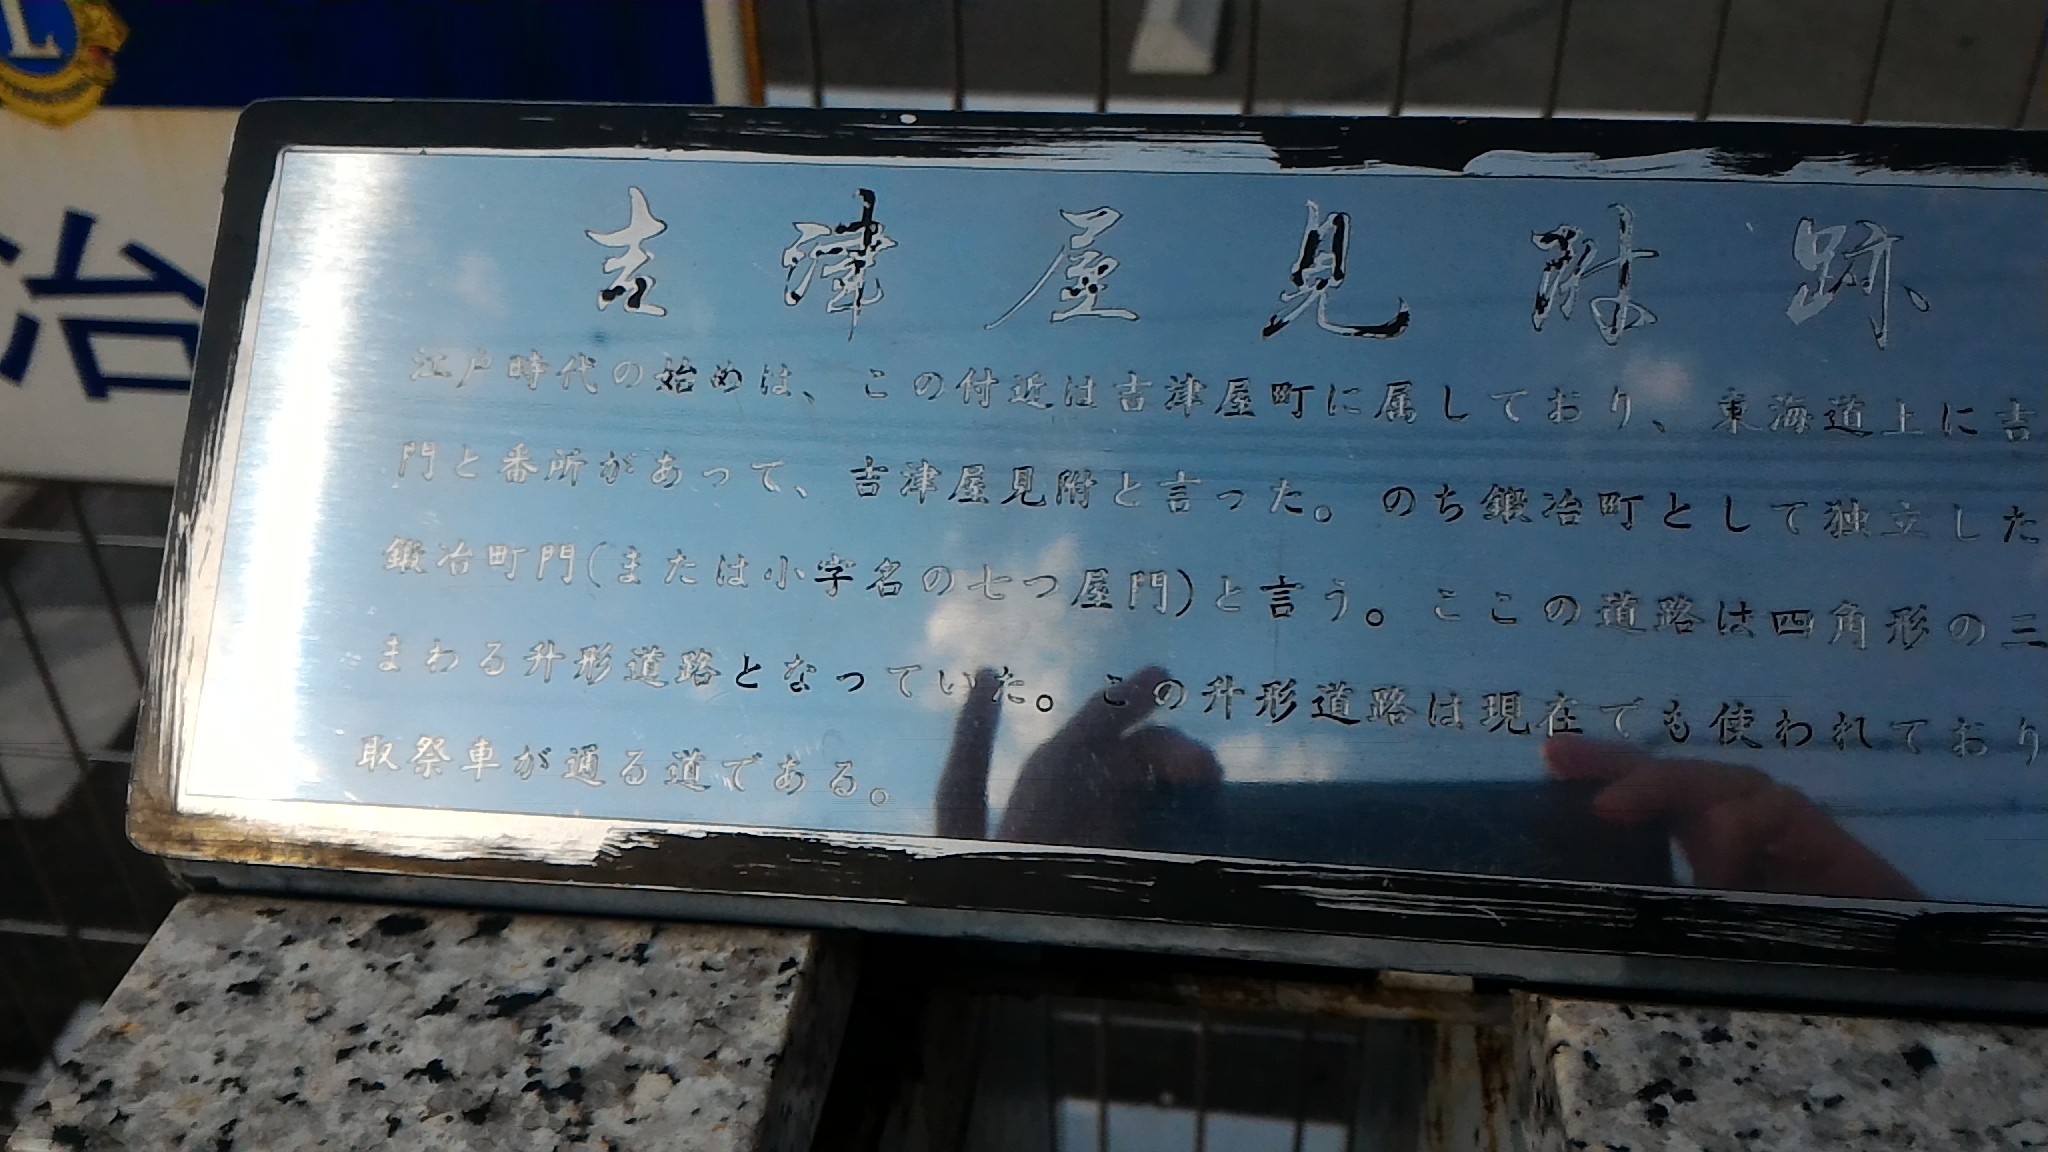 L
治
吉津屋見附跡
江戸時代の始めは、この付近は吉津屋町に属しており、東海道上に吉
門と番所があって、吉津屋見附と言った。のち鍛冶町として独立した
鍛冶町門(または小字名の七つ屋門)と言う。ここの道路は四角形の三
まわる升形道路となっていた。この升形道路は現在でも使われており
取祭車が通る道である。